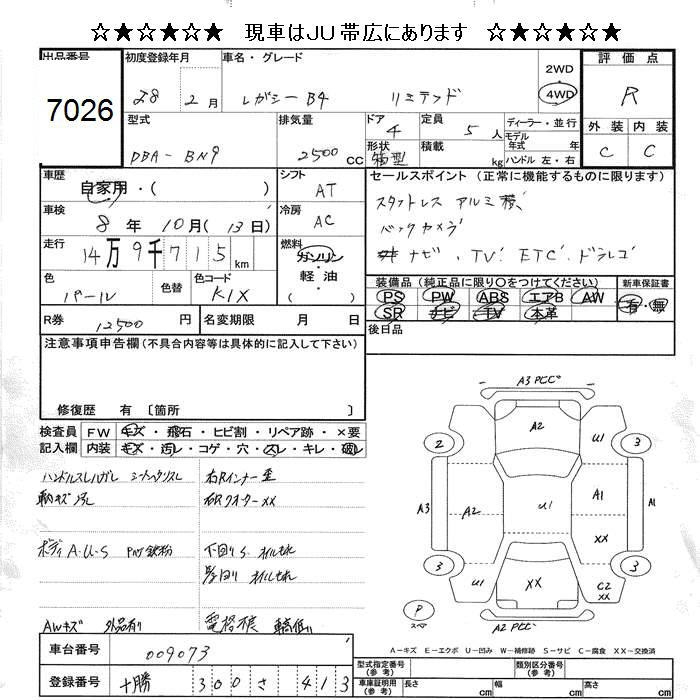 ☆★☆★☆★☆ 現車はJU帯広にあります ☆★☆★☆★☆
出品番号 初度登録年月 車名・グレード 評価点
7026 28 2月 レガシーB4 リミテッド 2WD 4WD R
型式 排気量 ドア 定員 ディーラー・並行 外装 内装
DBA-BN9 2500CC 4 5人 モデル年式 年 C C
形状 箱型 積載 kg ハンドル 左・右
車歴 自家用・( ) シフト AT セールスポイント(正常に機能するものに限ります)
スタットレス アルミ積
車検 8年10月(13日) 冷房 AC バックカメラ
走行 14万9千715km 燃料 ガソリン・軽油・( ) ナビ、TV ETC ドラレコ
色 パール 色替 色コード K1X 装備品(純正品に限り○をつけてください) 新車保証書
PS PW ABS エアB AW 有・無
SR ナビ TV 本革
R券 12500円 名変期限 月 日 後日品
注意事項申告欄(不具合内容等は具体的に記入して下さい)
修復歴 有〔箇所
検査員 FW キズ・飛石・ヒビ割・リペア跡・×要
記入欄 内装 キズ・汚レ・コゲ・穴・スレ・キレ・破レ
ハンドルスレハガレ 右Rインナー歪
右Rクオーター××
ボディA・U・S PW鉄粉 下回りS
AWキズ 外品有り 車高低い
A3 A2 U1 2 3
A3 A2 U1 A1 A1
XX
3 3
U1 XX C2 XX
P スペア A2
A-キズ E-エクボ U-凹み W-補修跡 S-サビ C-腐食 XX-交換済
車台番号 009073 型式指定番号(参考) 類別区分番号(参考)
登録番号 十勝 300 さ 413 車庫証明用(参考) 長さ cm 幅 cm 高さ cm